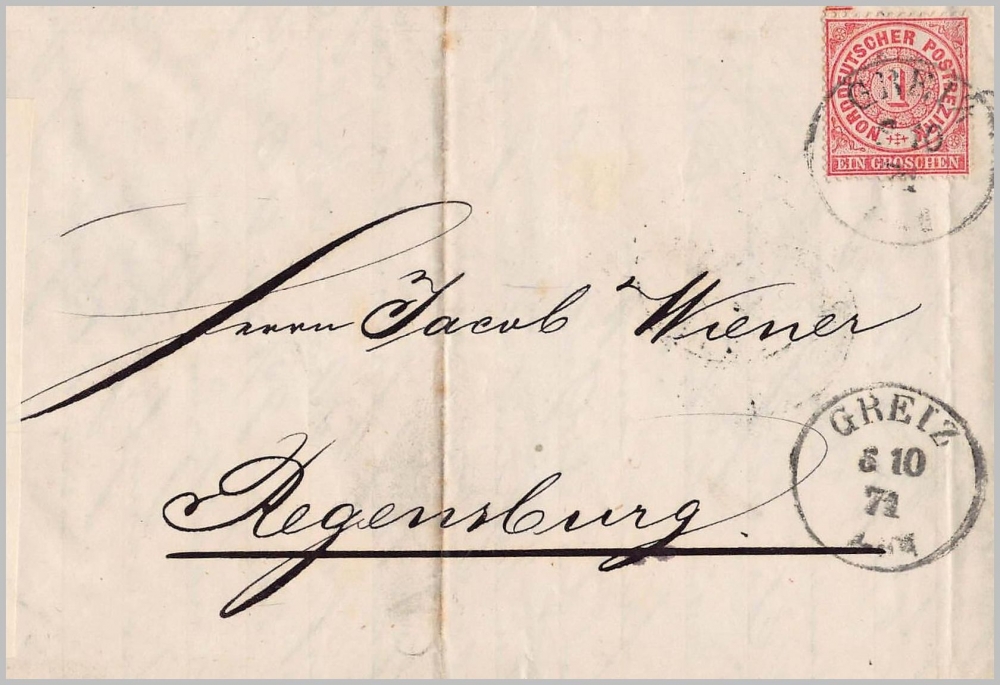 NORDDEUTSCHER POSTBEZIRK
1
EIN GROSCHEN
Herrn Jacob Wiener
Regensburg
GREIZ
10
71